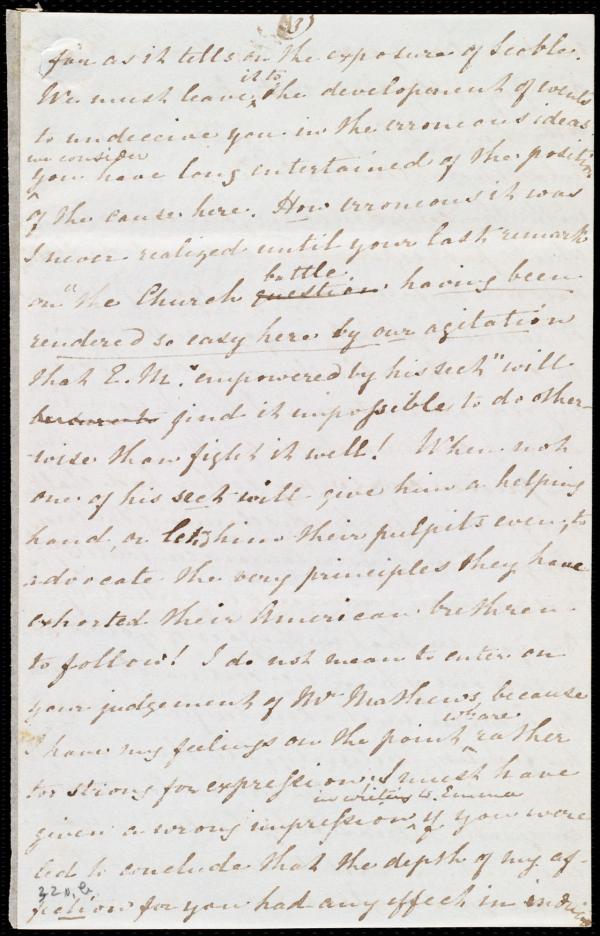 (3)
far as it tells on the exposure of Scoble.
We must leave it to the development of events
to undeceive you in the erroneous ideas
we consider
you have long entertained of the position
of the cause here. How erroneous it was
I never realized until your last remark
battle
on "the Church question having been
rendered so easy here by our agitation
that E. M. "empowered by his sect" will
find it impossible to do other-
-wise than fight it well! When not
one of his sect will give him a helping
hand, or let him their pulpits even, to
advocate the very principles they have
exhorted their American brethren
to follow! I do not mean to enter on
your judgement of Mr Mathews, because
I have my feelings on the point wh are rather
too strong for expression. I must have
in writing to Emma
given a wrong impression if you were
led to conclude that the depth of my af-
fection for you had any effect in